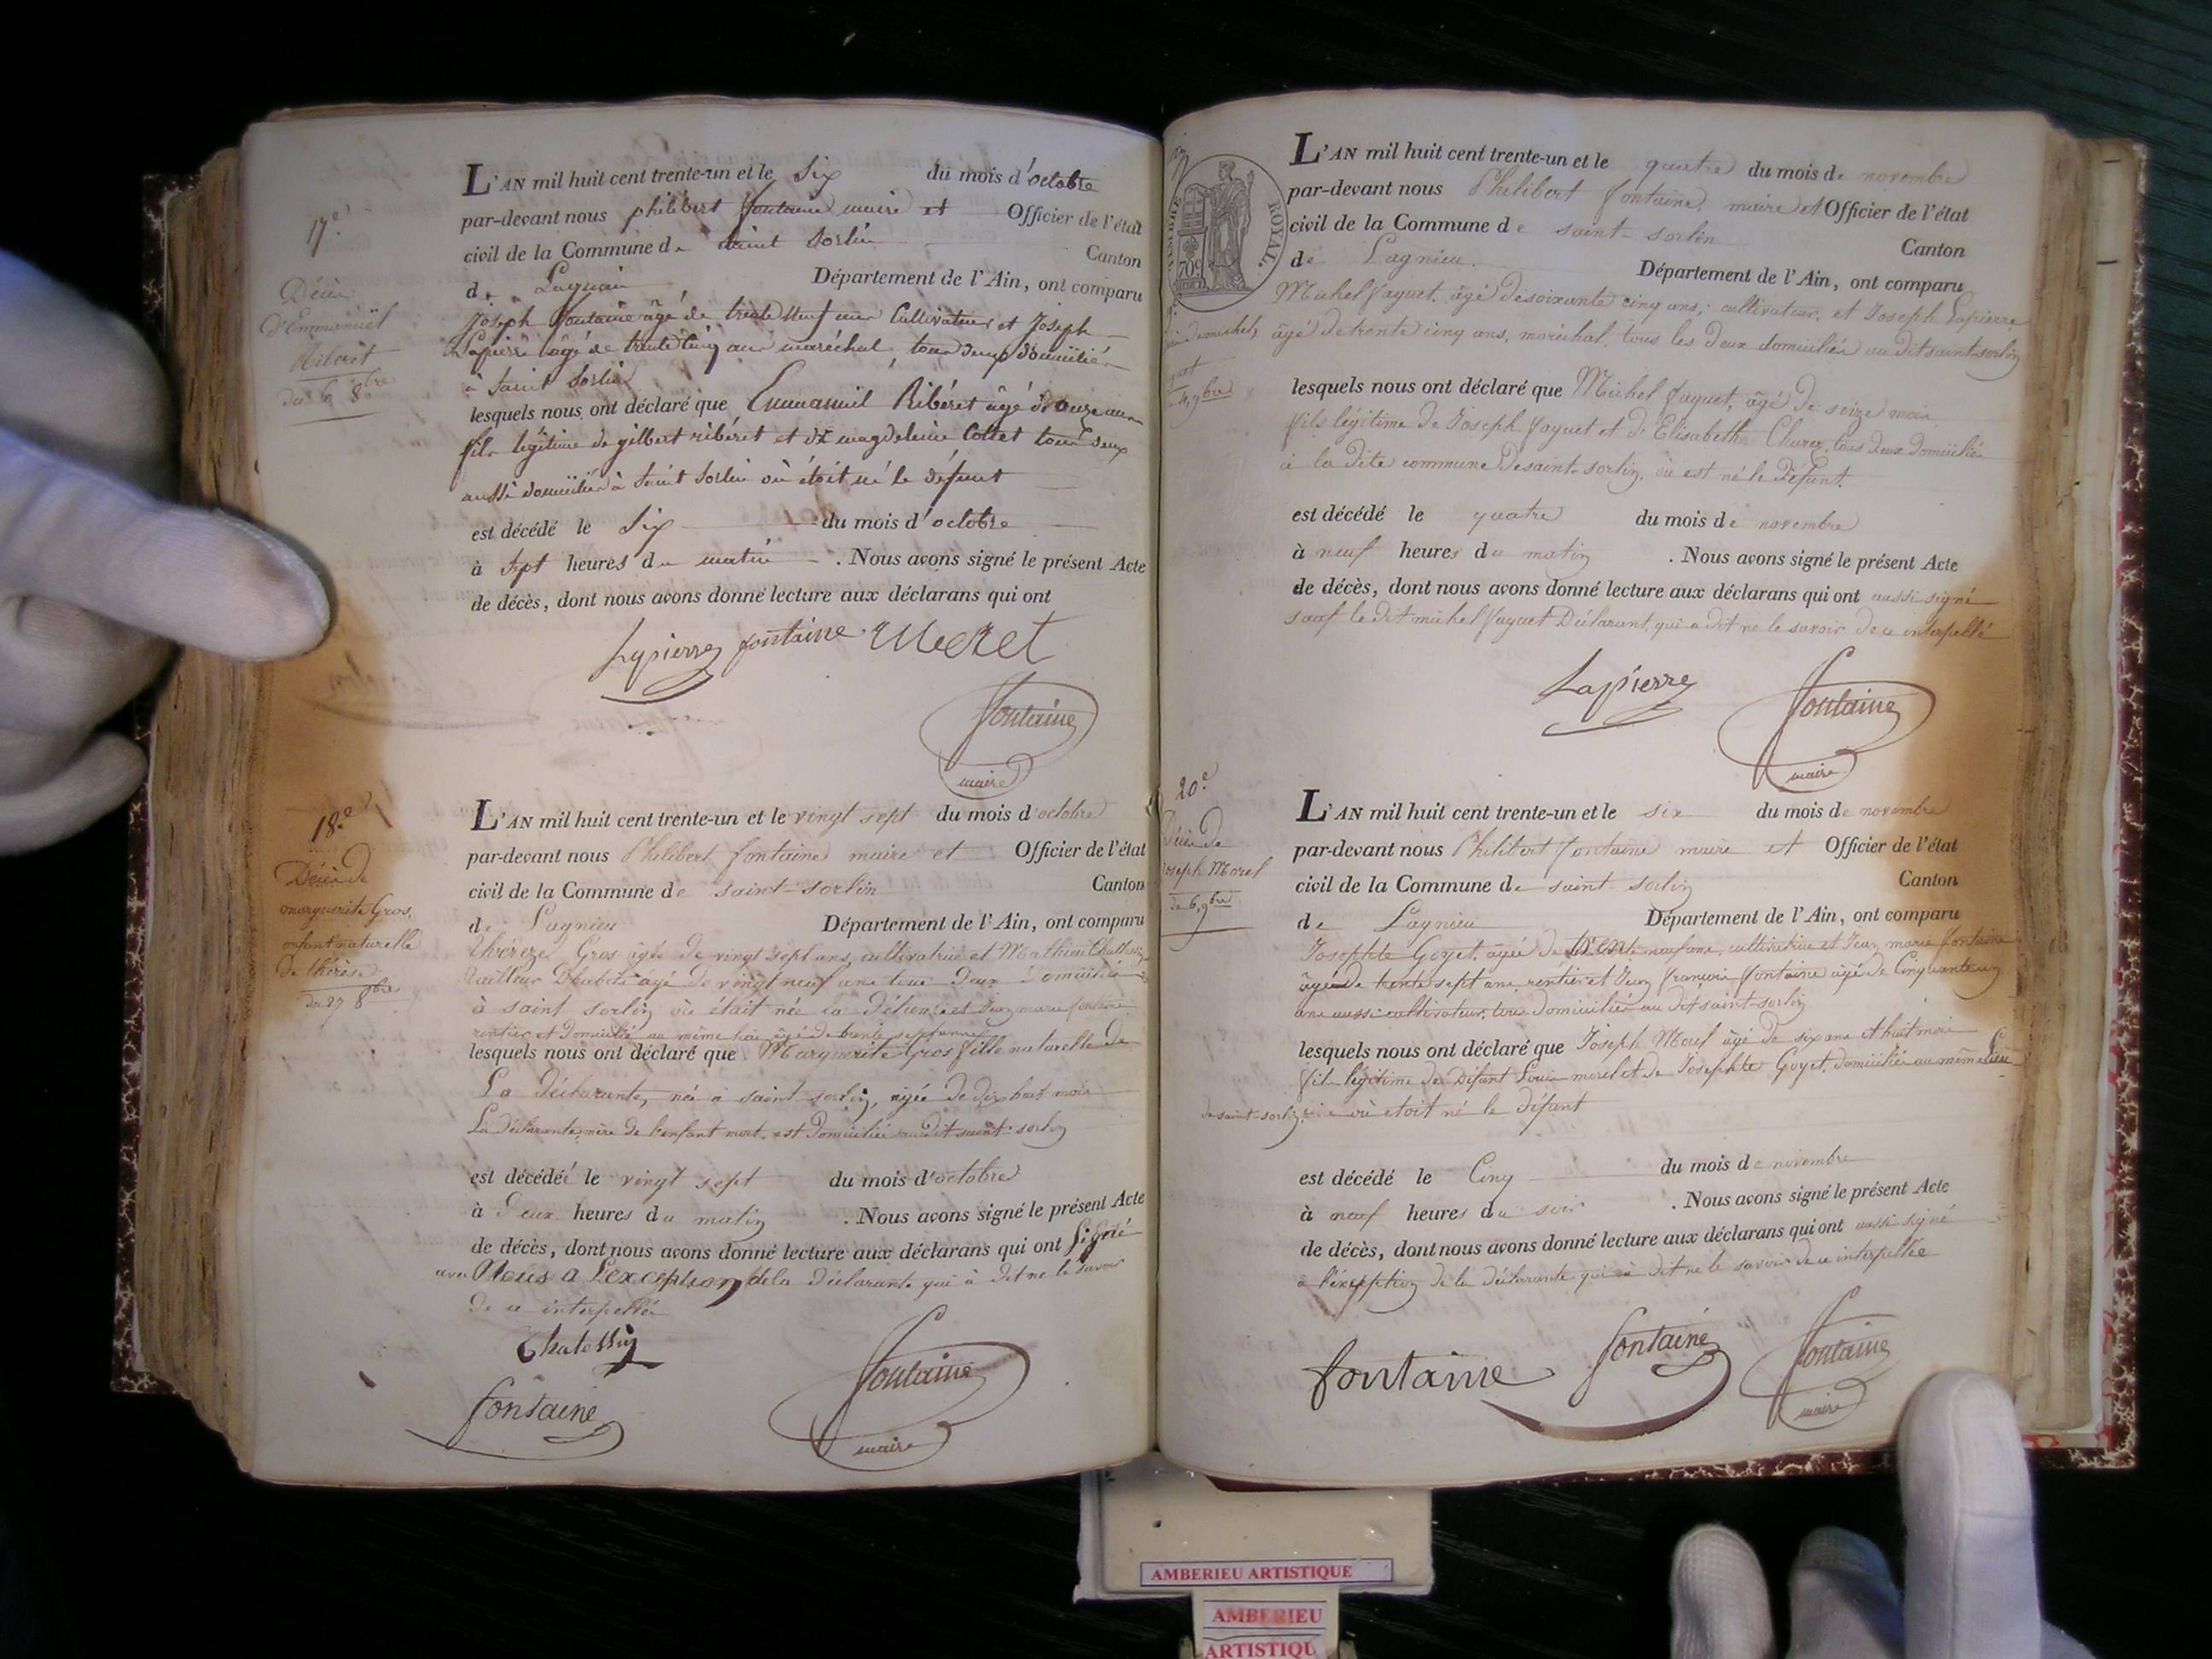 17.e
Décès
d'Emmanuel
Ribéret
du 6 8bre
L'AN mil huit cent trente-un et le six du mois d'octobre
par-devant nous philibert fontaine maire et Officier de l'état
civil de la Commune de saint Sorlin Canton
de Lagnieu Département de l'Ain, ont comparu
Joseph fontaine âgé de trente neuf ans Cultivateur et Joseph
Lapierre âgé de trente cinq ans maréchal, tous deux domiciliés
à saint Sorlin
lesquels nous ont déclaré que Emmanuël Ribéret âgé d'onze ans
fils légitime de gilbert ribéret et de magdeleine Collet tous deux
aussi domiciliés à saint Sorlin où étoit né le défunt
est décédé le six du mois d'octobre
à sept heures du matin . Nous avons signé le présent Acte
de décès, dont nous avons donné lecture aux déclarans qui ont
Lapierre fontaine
fontaine
maire
18.e
Décès de
marguerite Gros,
enfant naturelle
de thérèse
du 27 8bre
L'AN mil huit cent trente-un et le vingt sept du mois d'octobre
par-devant nous Philibert fontaine maire et Officier de l'état
civil de la Commune de saint-sorlin Canton
de Lagnieu Département de l'Ain, ont comparu
thérèze Gros âgée de vingt sept ans, cultivatrice et Mathieu
tailleur D'habits âgé de vingt neuf ans tous Deux domiciliés
à saint sorlin où était née la défunte et Jean marie fontaine
rentier et Domicilié au même lieu âgé de trente sept ans
lesquels nous ont déclaré que Marguerite Gros fille naturelle de
La déclarante, née à saint-sorlin, âgée de dix huit mois
La déclarante, mère de l'enfant mort, est Domiciliée audit saint-sorlin
est décédée le vingt sept du mois d'octobre
à Deux heures du matin . Nous avons signé le présent Acte
de décès, dont nous avons donné lecture aux déclarans qui ont signé
avec Nous a l'exception de la déclarante qui à dit ne le savoir
de ce interpellée
fontaine
fontaine
maire
TIMBRE ROYAL
70c
4, 9bre
L'AN mil huit cent trente-un et le quatre du mois de novembre
par-devant nous Philibert fontaine, maire et Officier de l'état
civil de la Commune de saint-sorlin Canton
de Lagnieu. Département de l'Ain, ont comparu
Michel faguet, âgé de soixante cinq ans, cultivateur, et Joseph Lapierre
âgé de trente cinq ans, maréchal, tous les Deux domiciliés au dit saint-sorlin
lesquels nous ont déclaré que Michel faguet, âgé De seize mois
fils légitime De Joseph faguet et d'Elisabeth tous Deux Domiciliés
à la Dite commune De saint-sorlin, où est né le Défunt.
est décédé le quatre du mois de novembre
à neuf heures du matin . Nous avons signé le présent Acte
de décès, dont nous avons donné lecture aux déclarans qui ont aussi signé
sauf le dit michel faguet Déclarant qui a dit ne le savoir de ce interpellé
Lapierre
fontaine
maire
20.e
Décès de
Joseph Morel
du 6, 9bre
L'AN mil huit cent trente-un et le six du mois de novembre
par-devant nous Philibert fontaine maire et Officier de l'état
civil de la Commune de saint-sorlin Canton
de Lagnieu Département de l'Ain, ont comparu
Josephte Goyet, âgée de trente neuf ans, cultivatrice et Jean marie fontaine
âgé de trente sept ans, rentier et Jean françois fontaine âgé de Cinquante un
ans aussi cultivateur, tous Domiciliés au dit saint-sorlin
lesquels nous ont déclaré que Joseph Morel âgé De six ans et huit mois
fils légitime de Défunt Louis morel et de Josephte Goyet, domiciliée au même lieu
de saint-sorlin où etoit né le défunt
est décédé le Cinq du mois de novembre
à neuf heures du soir . Nous avons signé le présent Acte
de décès, dont nous avons donné lecture aux déclarans qui ont aussi signé
à l'exception de la déclarante qui a dit ne le savoir de ce interpellée
fontaine fontaine fontaine
maire
AMBERIEU ARTISTIQUE
AMBERIEU
ARTISTIQU